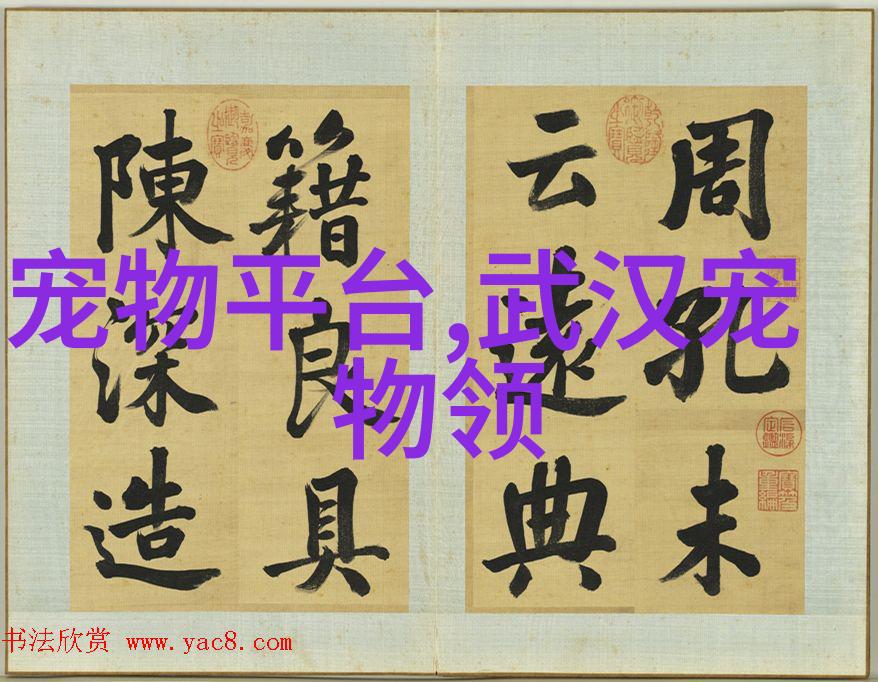 周孔未
云遠典
籍良具
陳深造
宠物平台,武汉宠
物领
书法欣赏 www.yac8.com